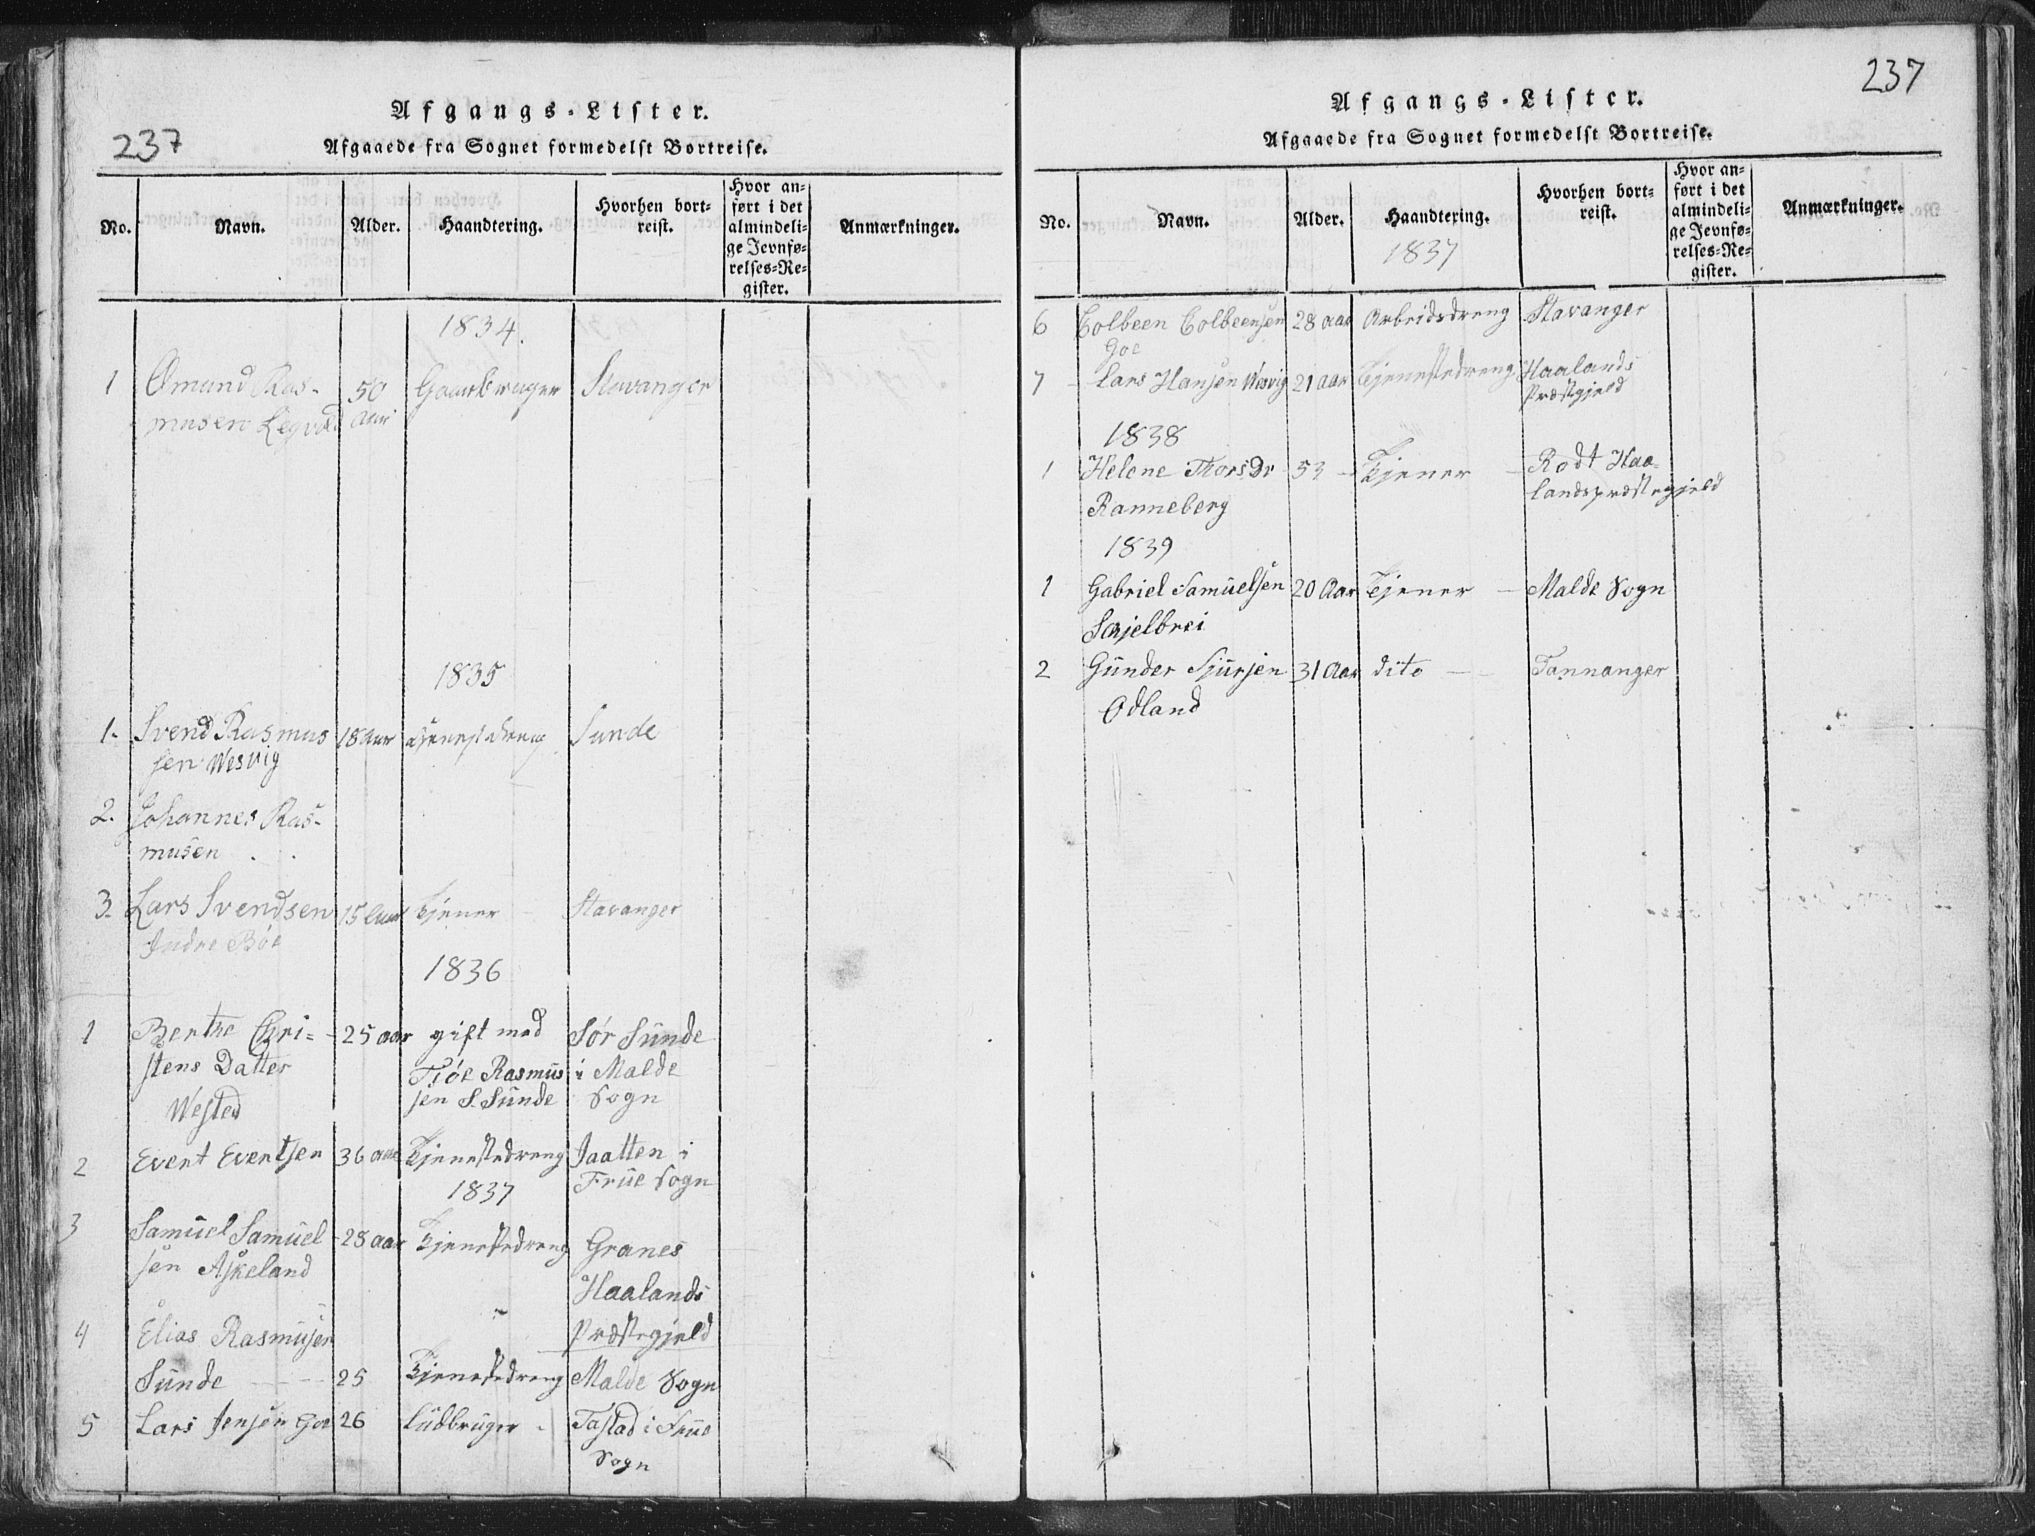 237
Afgangs-Lister.
Afgaaede fra Sognet formedelst Bortreise.
No. Navn. Alder. Haandtering. Hvorhen bortreist. Hvor anført i det almindelige Jevnførelses-Register. Anmærkninger.
1834.
1 Omund Ras- 50 Gaardbruger Stavanger
musen Legvold Aar
1835
1. Svend Rasmus 18 Aar tjenestedreng Sunde
sen Wesvig
2. Johannes Ras-
musen
3. Lars Svendsen 15 Aar Tjener Stavanger
Indre Bøe
1836
1 Berthe Chri= 25 aar gift med Sør Sunde
stens Datter Tjøe Rasmus i Malde
Wested sen S. Sunde Sogn
2 Evert Evertsen 36 aar Tjenestedreng Jaatten i
1837 Frue Sogn
3 Samuel Samuel 28 aar Tjenestedreng Granes
sen Askeland Haalands
4 Elias Rasmusen Præstegjeld
Sunde 25 Tjenestedreng Malde Sogn
5 Lars Jensen Goe 26 Ludbruger Tastad i Frue
Sogn
237
Afgangs-Lister.
Afgaaede fra Sognet formedelst Bortreise.
No. Navn. Alder. Haandtering. Hvorhen bortreist. Hvor anført i det almindelige Jevnførelses-Register. Anmærkninger.
1837
6 Colbeen Colbeensen 28 aar Arbeidsdreng Stavanger
Goe
7 Lars Hansen Wesvig 21 aar Tjenestedreng Haalands
Præstgjeld
1838
1 Helene Thorsdr 53 Tjener Rodt Haa-
Ranneberg landspræstegjeld
1839
1 Gabriel Samuelsen 20 Aar Tjener Malde Sogn
Skjelbrei
2 Gunder Sjursen 31 Aar dito Tannanger
Odland